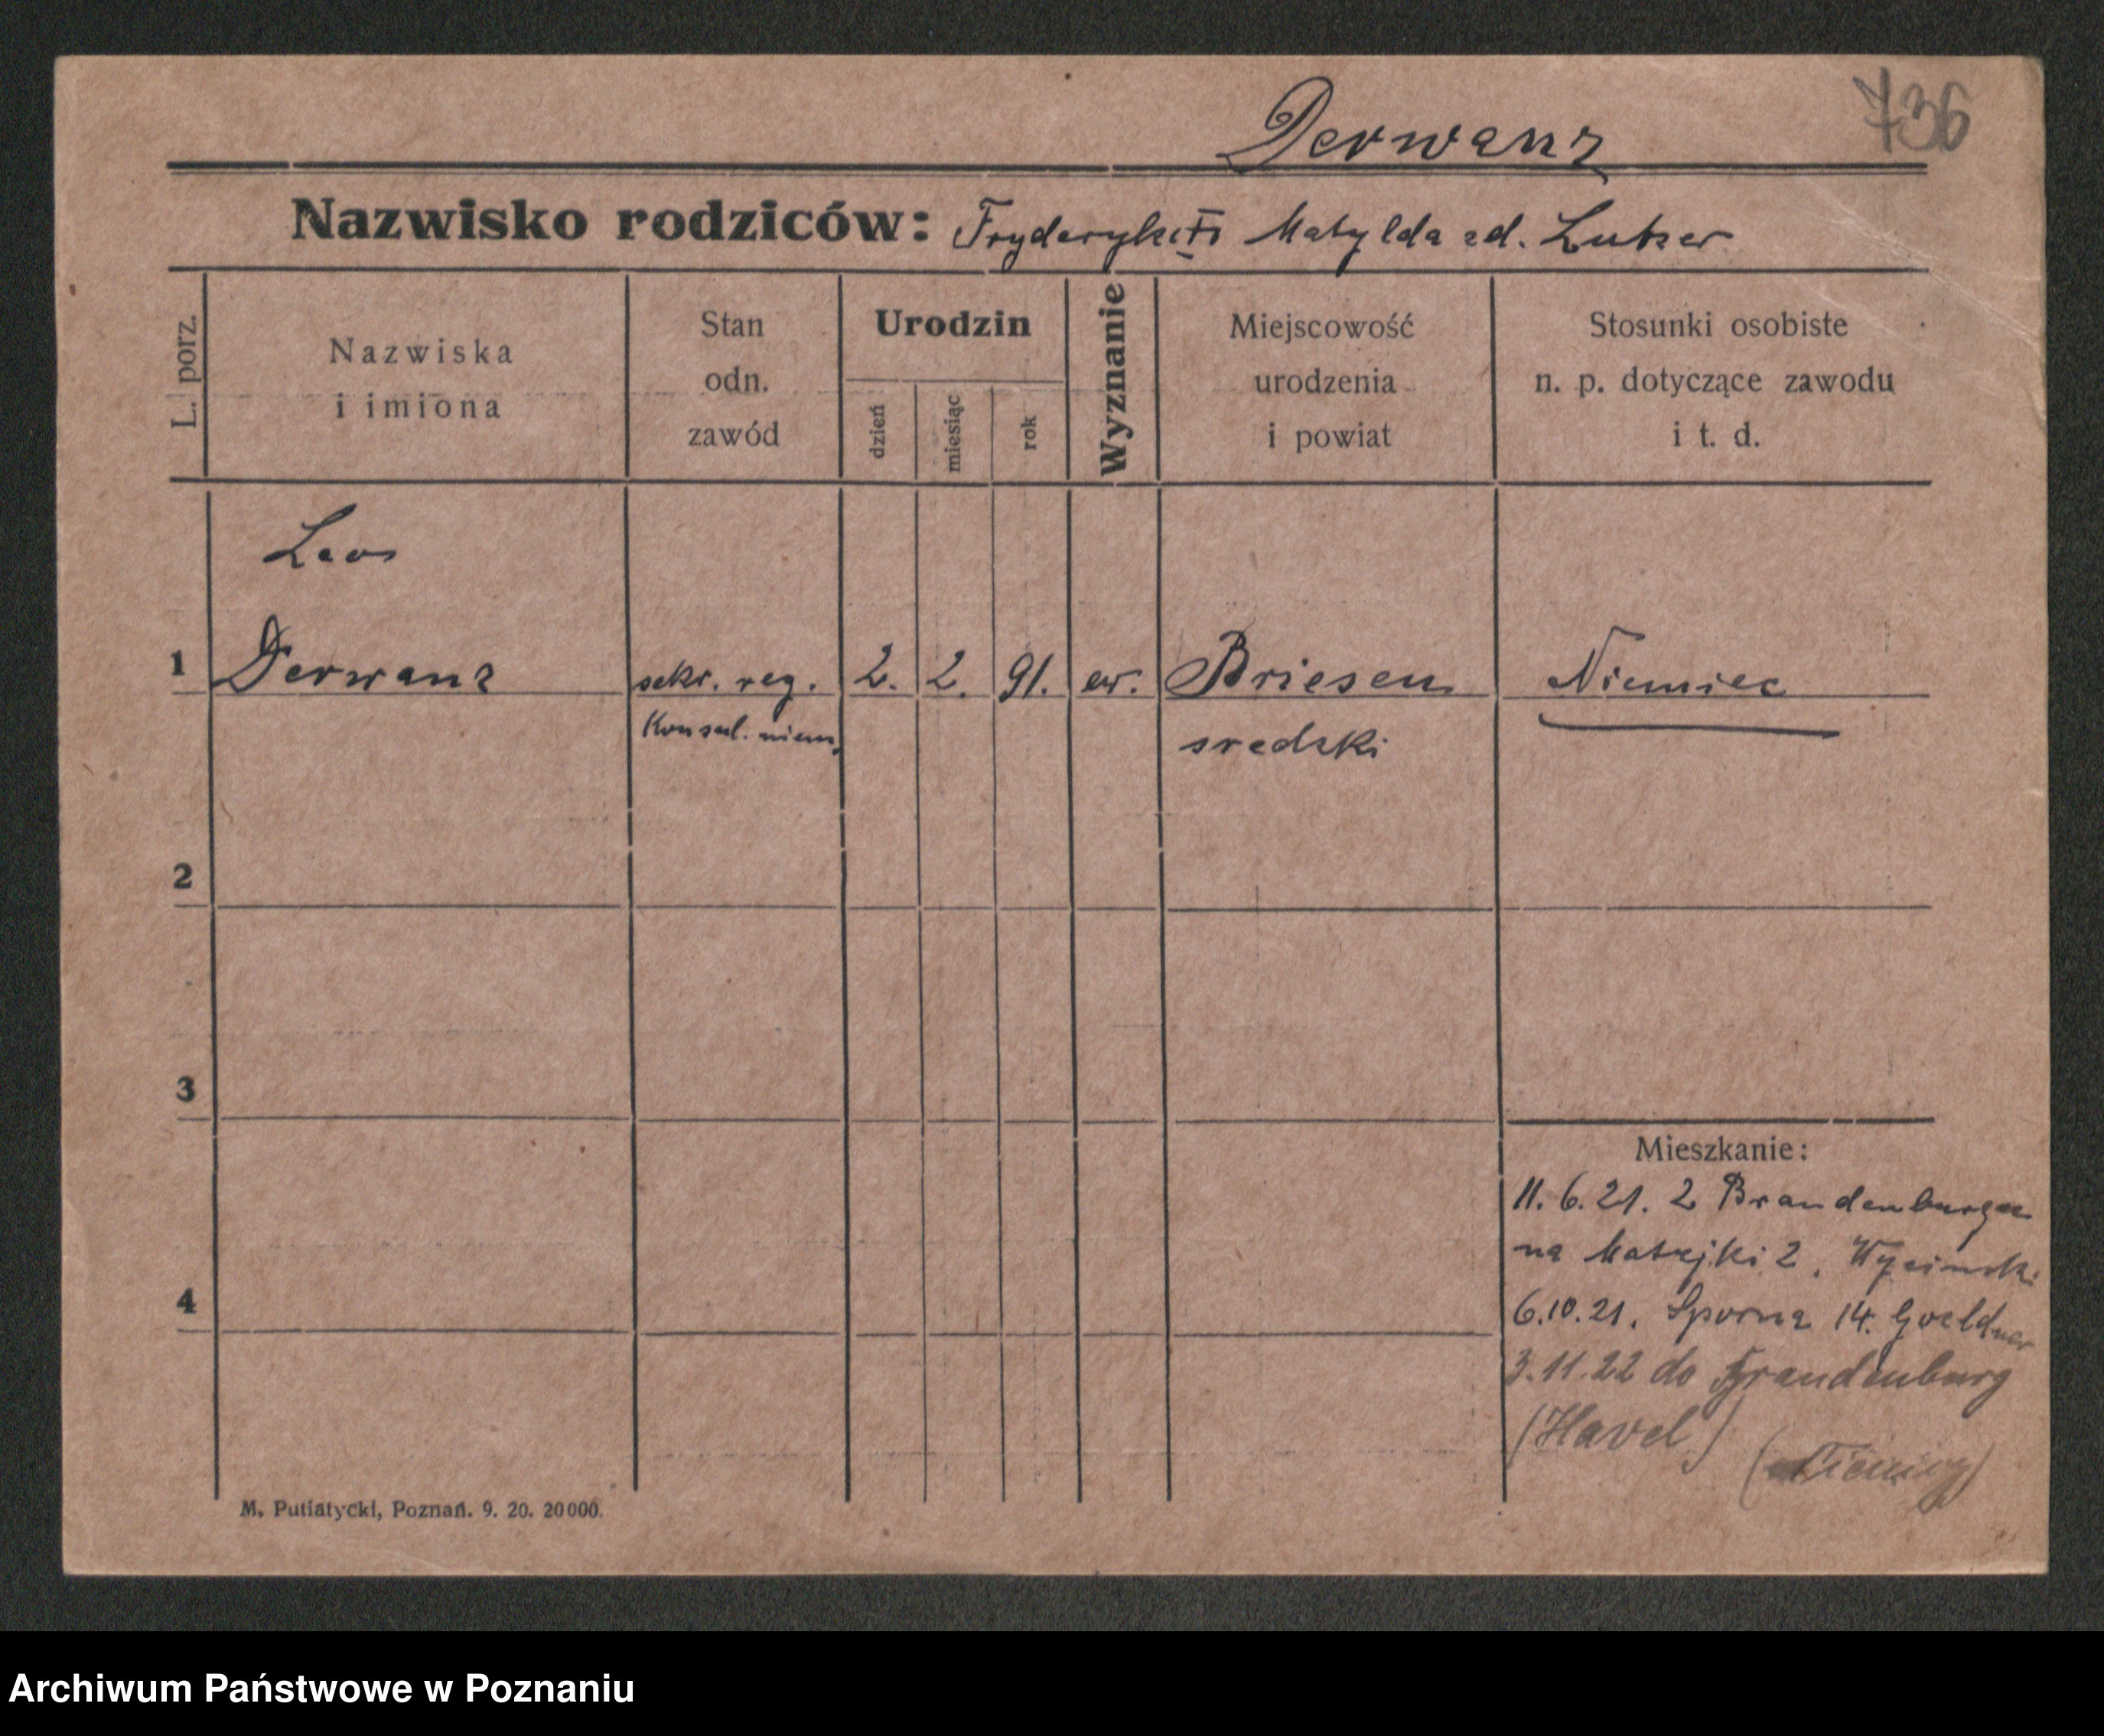 Derwanz
736
Nazwisko rodziców: Fryderyk i Matylda zd. Lutzer
L. porz.
Nazwiska i imiona
Stan odn. zawód
Urodzin
dzień
miesiąc
rok
Wyznanie
Miejscowość urodzenia i powiat
Stosunki osobiste n. p. dotyczące zawodu i t. d.
Leon
1 Derwanz sekr. reg. 2. 2. 91. ew. Briesen Niemiec
Konsul. niem. sredzki
2
3
Mieszkanie:
11. 6. 21. z Brandenburga
na Matejki 2,
4
6.10.21. Sporna 14. Goeldner
3.11.22 do Brandenburg
(Havel)
(Niemcy)
M. Putiatycki, Poznań. 9. 20. 20000.
Archiwum Państwowe w Poznaniu